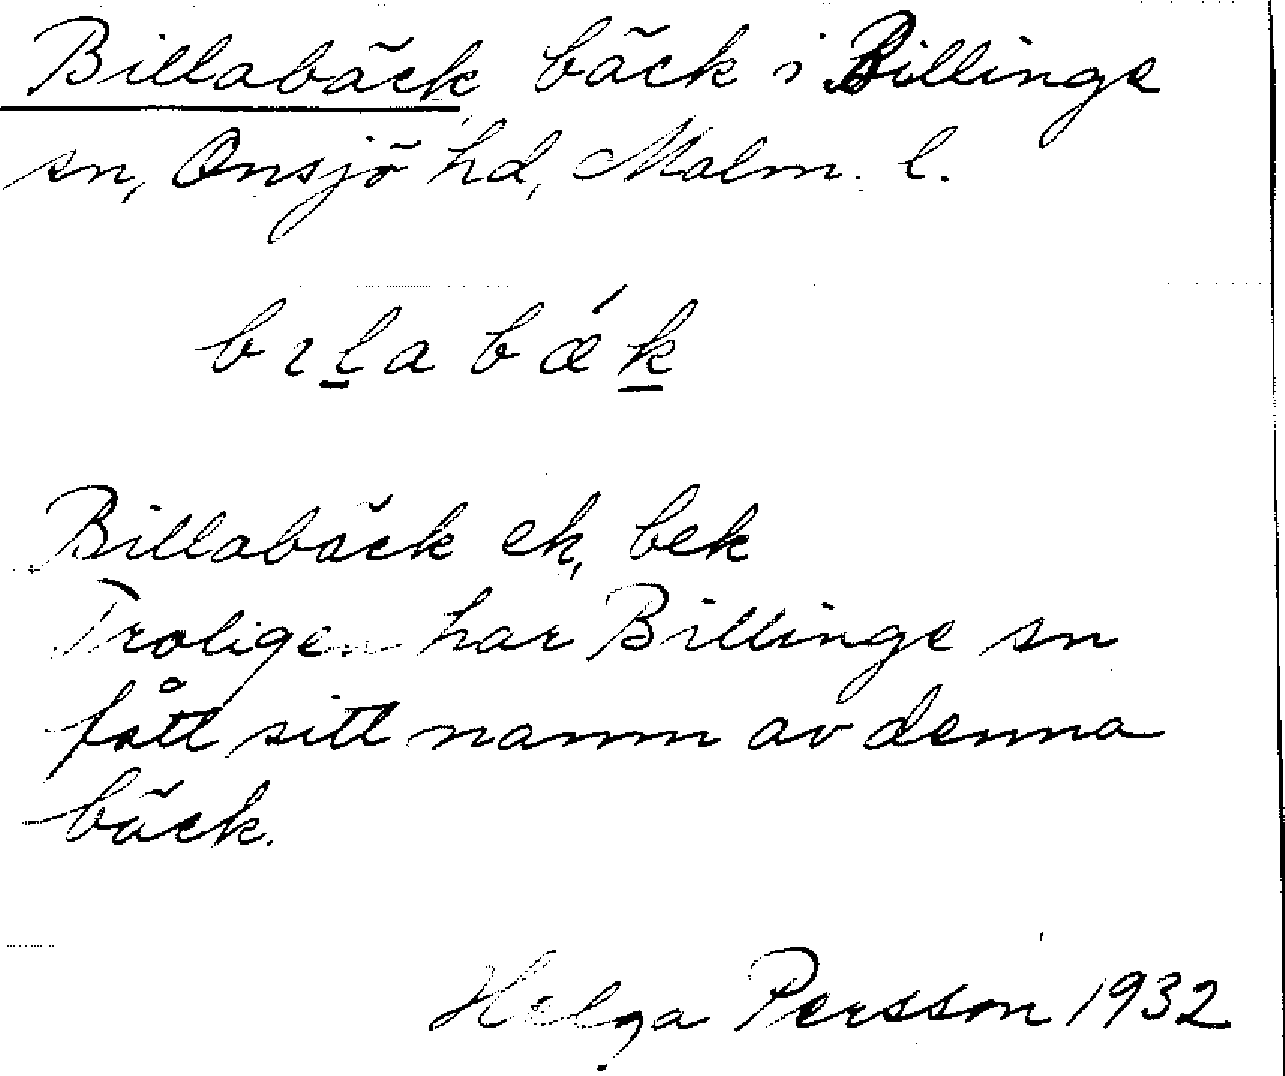 Billabäck bäck i Billinge
sn, Onsjö hd, Malm. l.
bɪl̲a bǽk̲
Billabäck ek, bek
Troligen har Billinge sn
fått sitt namn av denna
bäck.
Helga Persson 1932